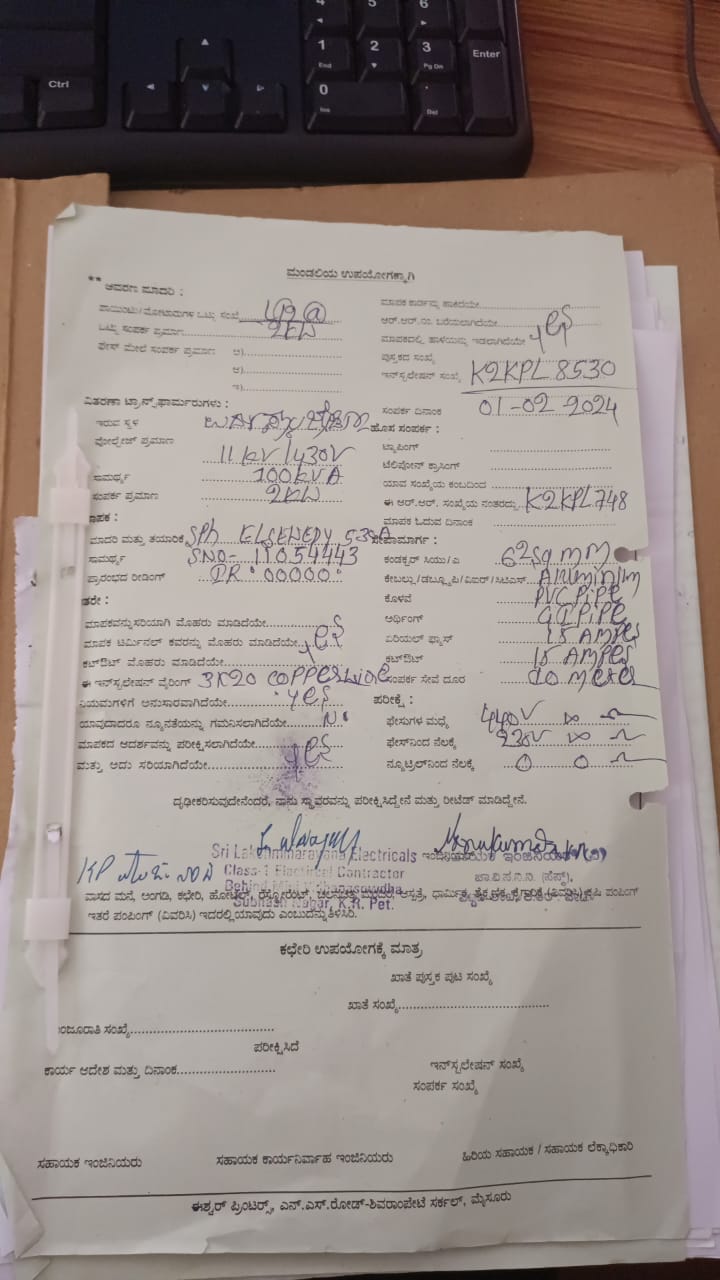 4
5
6
1
End
2
3
Pg Dn
Enter
Ctrl
0
Ins
.
Del
ಮಂಡಲಿಯ ಉಪಯೋಗಕ್ಕಾಗಿ
** ಆವರಣ ಮಾದರಿ :
ಪಾಯಿಂಟು/ಮೋಟಾರುಗಳ ಒಟ್ಟು ಸಂಖ್ಯೆ
ಒಟ್ಟು ಸಂಪರ್ಕ ಪ್ರಮಾಣ 2KW
ಫೇಸ್ ಮೇಲೆ ಸಂಪರ್ಕ ಪ್ರಮಾಣ ಅ)
ಆ)
ಇ)
ವಿತರಣಾ ಟ್ರಾನ್ಸ್‌ಫಾರ್ಮರುಗಳು :
ಇರುವ ಸ್ಥಳ
ವೋಲ್ಟೇಜ್ ಪ್ರಮಾಣ 11KV/430V
ಸಾಮರ್ಥ್ಯ 100KVA
ಸಂಪರ್ಕ ಪ್ರಮಾಣ 2KW
ಮಾದರಿ ಮತ್ತು ತಯಾರಿಕೆ SPh
ಸಾಮರ್ಥ್ಯ SNO- 11054443
ಪ್ರಾರಂಭದ ರೀಡಿಂಗ್ IR : 00000
ಮಾಪಕವನ್ನು ಸರಿಯಾಗಿ ಮೊಹರು ಮಾಡಿದೆಯೇ
ಮಾಪಕ ಟರ್ಮಿನಲ್ ಕವರನ್ನು ಮೊಹರು ಮಾಡಿದೆಯೇ
ಕಟ್‌ಔಟ್ ಮೊಹರು ಮಾಡಿದೆಯೇ yes
ಈ ಇನ್‌ಸ್ಟಲೇಷನ್ ವೈರಿಂಗ್ 3K20 COPPER
ನಿಯಮಗಳಿಗೆ ಅನುಸಾರವಾಗಿದೆಯೇ yes
ಯಾವುದಾದರೂ ನ್ಯೂನತೆಯನ್ನು ಗಮನಿಸಲಾಗಿದೆಯೇ No
ಮಾಪಕದ ಆದರ್ಶವನ್ನು ಪರೀಕ್ಷಿಸಲಾಗಿದೆಯೇ
ಮತ್ತು ಅದು ಸರಿಯಾಗಿದೆಯೇ yes
ಮಾಪಕ ಕಾರ್ಡನ್ನು ಹಾಕಿದೆಯೇ
ಆರ್.ಆರ್.ನಂ. ಬರೆಯಲಾಗಿದೆಯೇ
ಮಾಪಕದಲ್ಲಿ ಹಾಳೆಯನ್ನು ಇಡಲಾಗಿದೆಯೇ yes
ಪುಸ್ತಕದ ಸಂಖ್ಯೆ
ಇನ್‌ಸ್ಟಲೇಷನ್ ಸಂಖ್ಯೆ K2KPL8530
ಸಂಪರ್ಕ ದಿನಾಂಕ 01-02-2024
ಹೊಸ ಸಂಪರ್ಕ :
ಟ್ಯಾಪಿಂಗ್
ಟೆಲಿಫೋನ್ ಕ್ರಾಸಿಂಗ್
ಯಾವ ಸಂಖ್ಯೆಯ ಕಂಬದಿಂದ
ಈ ಆರ್.ಆರ್. ಸಂಖ್ಯೆಯ ನಂತರದ್ದು K2KPL748
ಮಾಪಕ ಓದುವ ದಿನಾಂಕ
ಸೇವಾಮಾರ್ಗ :
ಕಂಡಕ್ಟರ್ ಸಿಯು/ಎ 62sqmm
ಕೇಬಲ್ಲು/ಡಬ್ಲ್ಯೂಪಿ/ವಿಐರ್/ಸಿಟಿಎಸ್ Aluminium
ಕೊಳವೆ PVC Pipe
ಅರ್ಥಿಂಗ್ GI Pipe
ಏರಿಯಲ್ ಫ್ಯೂಸ್ 15 AMPes
ಕಟ್‌ಔಟ್ 15 AMPes
ಸಂಪರ್ಕ ಸೇವೆ ದೂರ 10 meter
ಪರೀಕ್ಷೆ :
ಫೇಸುಗಳ ಮಧ್ಯೆ 440V ∞
ಫೇಸ್‌ನಿಂದ ನೆಲಕ್ಕೆ 230V ∞
ನ್ಯೂಟ್ರಲ್‌ನಿಂದ ನೆಲಕ್ಕೆ 0 0
ದೃಢೀಕರಿಸುವುದೇನೆಂದರೆ, ನಾನು ಸ್ಥಾವರವನ್ನು ಪರೀಕ್ಷಿಸಿದ್ದೇನೆ ಮತ್ತು ರೀಟೆಡ್ ಮಾಡಿದ್ದೇನೆ.
Sri Lakshminarayana Electricals
Class-1 Electrical Contractor
Behind Mini Vidhanasowdha
Subhash Nagar, K.R. Pet.
ವಾಸದ ಮನೆ, ಅಂಗಡಿ, ಕಛೇರಿ, ಹೋಟೆಲ್, ರೆಸ್ಟೋರೆಂಟ್, ಚಲನಚಿತ್ರ ಮಂದಿರ, ಆಸ್ಪತ್ರೆ, ಧಾರ್ಮಿಕ, ಶೈಕ್ಷಣಿಕ, ಕೈಗಾರಿಕೆ (ವಿವರಿಸಿ) ಕೃಷಿ ಪಂಪಿಂಗ್
ಇತರೆ ಪಂಪಿಂಗ್ (ವಿವರಿಸಿ) ಇದರಲ್ಲಿ ಯಾವುದು ಎಂಬುದನ್ನು ತಿಳಿಸಿರಿ.
ಕಛೇರಿ ಉಪಯೋಗಕ್ಕೆ ಮಾತ್ರ
ಖಾತೆ ಪುಸ್ತಕ ಪುಟ ಸಂಖ್ಯೆ
ಖಾತೆ ಸಂಖ್ಯೆ
ಂಜೂರಾತಿ ಸಂಖ್ಯೆ
ಪರೀಕ್ಷಿಸಿದೆ
ಕಾರ್ಯ ಆದೇಶ ಮತ್ತು ದಿನಾಂಕ
ಇನ್‌ಸ್ಟಲೇಷನ್ ಸಂಖ್ಯೆ
ಸಂಪರ್ಕ ಸಂಖ್ಯೆ
ಸಹಾಯಕ ಇಂಜಿನಿಯರು ಸಹಾಯಕ ಕಾರ್ಯನಿರ್ವಾಹ ಇಂಜಿನಿಯರು ಹಿರಿಯ ಸಹಾಯಕ / ಸಹಾಯಕ ಲೆಕ್ಕಾಧಿಕಾರಿ
ಈಶ್ವರ್ ಪ್ರಿಂಟರ್ಸ್, ಎನ್.ಎಸ್.ರೋಡ್-ಶಿವರಾಂಪೇಟೆ ಸರ್ಕಲ್, ಮೈಸೂರು